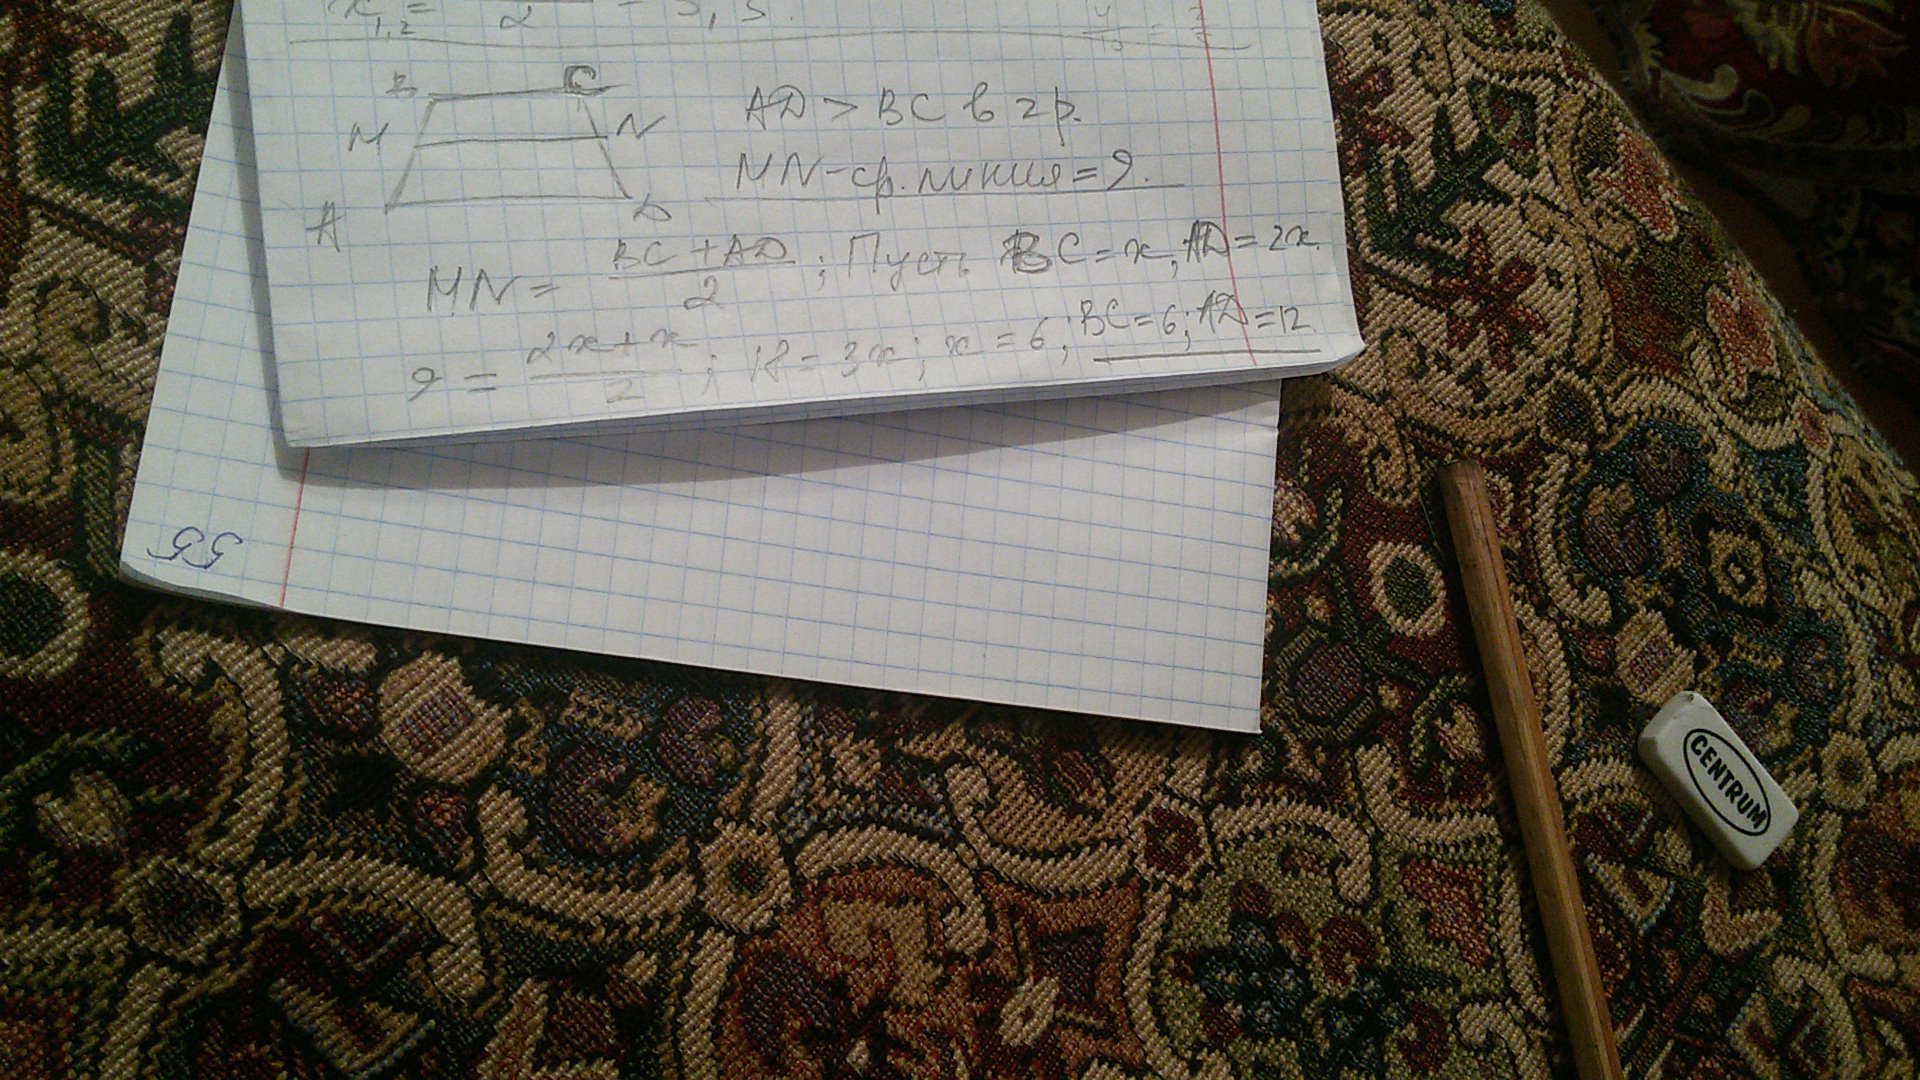 x₁,₂ = / 2 = 3,5.
B C
M N
A D
AD > BC в 2 р.
MN - ср. линия = 9.
MN = (BC + AD) / 2 ; Пусть BC = x; AD = 2x.
9 = (2x + x) / 2 ; 18 = 3x; x = 6; BC = 6; AD = 12
55
CENTRUM